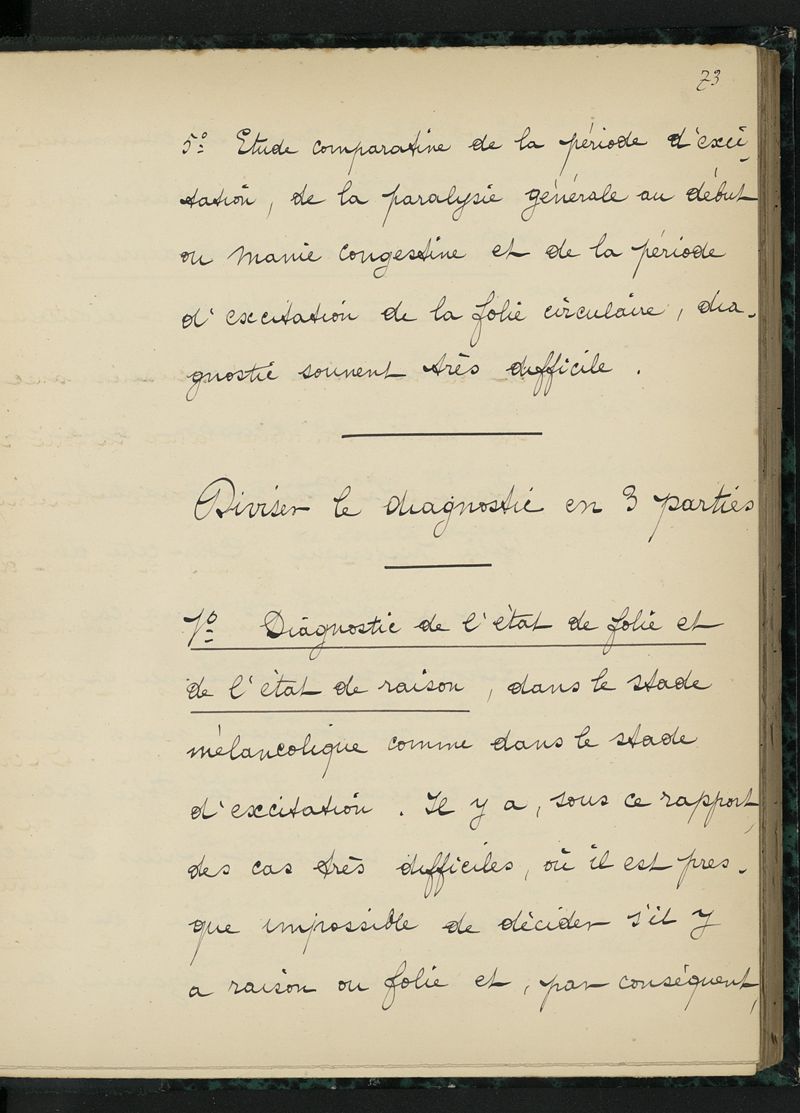 73
5º Etude comparative de la période d'exci-
tation, de la paralysie générale au début
ou manie congestive et de la période
d'excitation de la folie circulaire, dia-
gnostic souvent très difficile.
Diviser le diagnostic en 3 parties
1º Diagnostic de l'état de folie et
de l'état de raison, dans le stade
mélancolique comme dans le stade
d'excitation. Il y a, sous ce rapport,
des cas très difficiles, où il est pres-
que impossible de décider s'il y
a raison ou folie et, par conséquent,